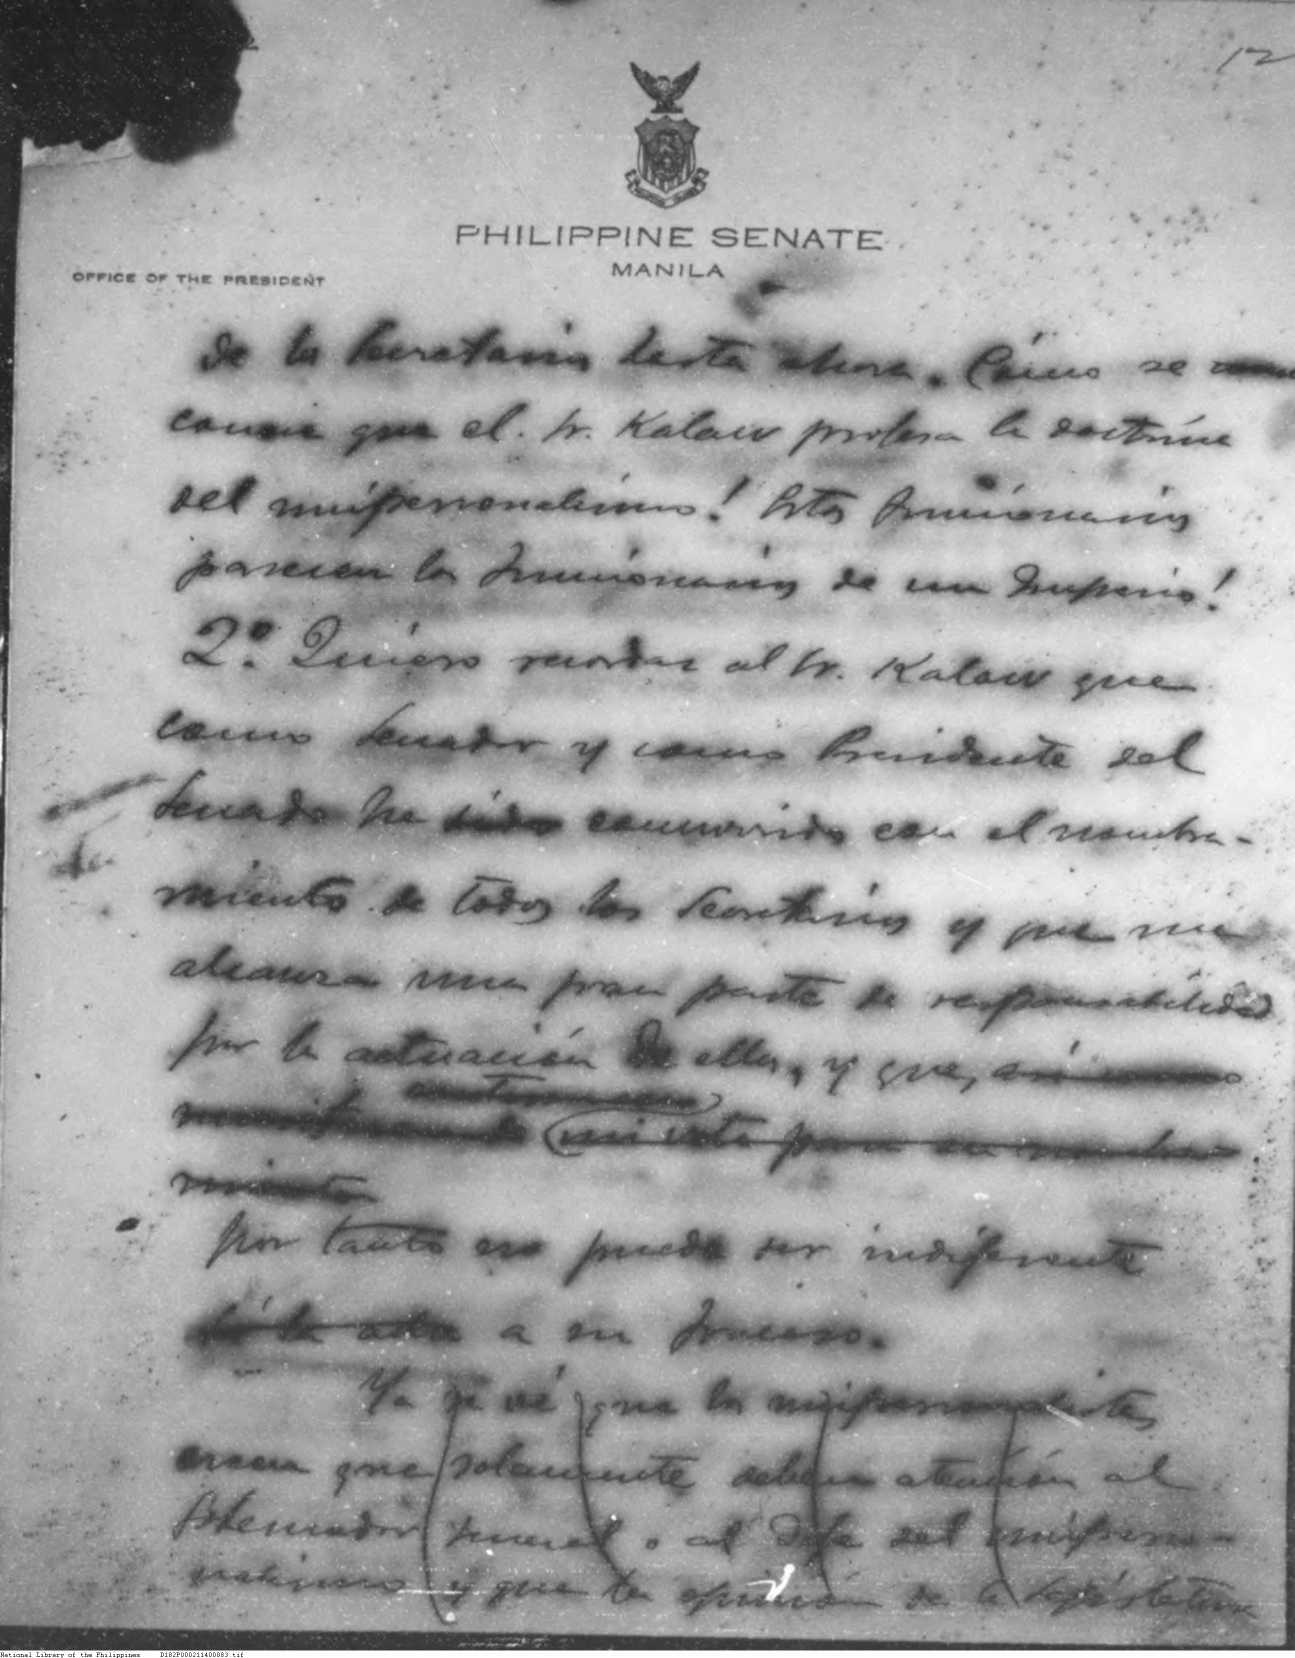 12
PHILIPPINE SENATE
MANILA
OFFICE OF THE PRESIDENT
de la Secretarias hasta ahora. Cómo se
conoce que el Sr. Kalaw profesa la doctrina
del unipersonalismo! Estos funcionarios
parecen los funcionarios de un Imperio!
2º. Quiero recordar al Sr. Kalaw que
como Senador y como Presidente del
Senado he sido convenido con el nombra-
miento de todos los Secretarios y que me
alcanza una gran parte de responsabilidad
por la actuación de ellos, y que,
mi voto para su nombra
miento
por tanto no puedo ser indiferente
a su fracaso.
Ya se vé que los unipersonalistas
creen que solamente deben atención al
Gobernador General o al Jefe del uniperso-
nalismo y que la opinión de la Legislatura
National Library of the Philippines D182P000211400083.tif